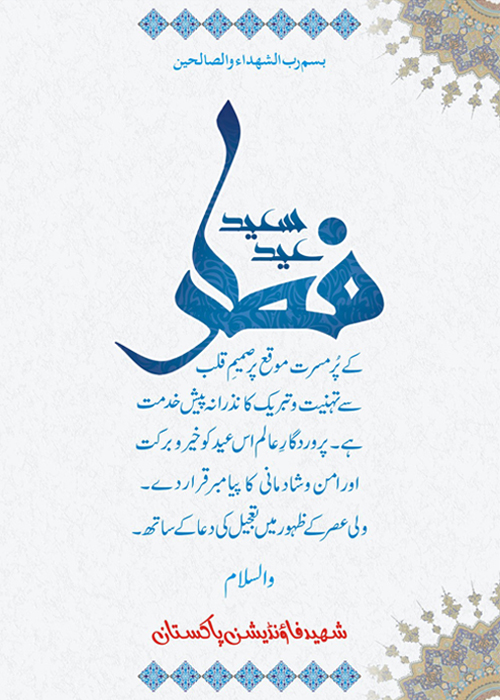 بسم رب الشهداء والصالحین
سعید
عید
فطر
کے پُرمسرت موقع پر صمیمِ قلب
سے تہنیت و تبریک کا نذرانہ پیش خدمت
ہے۔ پروردگارِ عالم اس عید کو خیر و برکت
اور امن و شادمانی کا پیامبر قرار دے۔
ولی عصر کے ظہور میں تعجیل کی دعا کے ساتھ۔
والسلام
شہید فاؤنڈیشن پاکستان